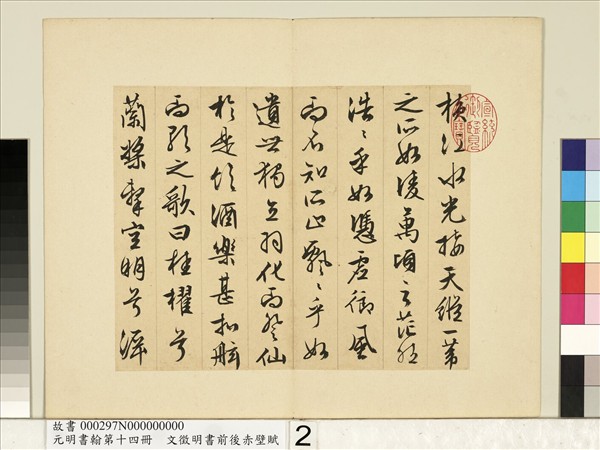 橫江水光接天縱一葦
之所如凌萬頃之茫然
浩〻乎如憑虛御風
而不知所止飄〻乎如
遺世獨立羽化而登仙
於是飲酒樂甚扣舷
而歌之歌曰桂櫂兮
蘭槳擊空明兮泝
宣統御覽之寶
故書 000297N000000000
元明書翰第十四冊　文徵明書前後赤壁賦
2